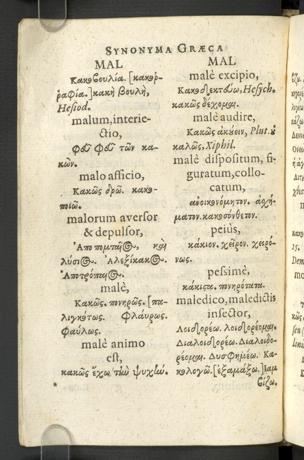 SYNONYMA GRÆCA
MAL
Κακοβουλία. [κακορ-
ραφία.] κακὴ βουλὴ,
Hesiod.
malum, interie-
ctio,
Φεῦ Φεῦ τῶν κα-
κῶν.
malo afficio,
Κακῶς δρῶ. κακο-
ποιῶ.
malorum aversor
& depulsor,
Ἀποπομπαῖος, καὶ
λύσιος. Ἀλεξίκακος.
Ἀποτρόπαιος.
malè,
Κακῶς. πονηρῶς. [πα-
λιγκότως. Φλαύρως.
Φαύλως.
malè animo
est,
κακῶς ἔχω τὴν ψυχὴν.
MAL
malè excipio,
Hesych.
κακῶς δέχομαι.
malè audire,
Κακῶς ἀκούειν, Plut.
καλῶς. Xiphil.
malè dispositum, fi-
guratum, collo-
catum,
ἀνοικονόμητον. ἀσχή-
ματον. κακοσύνθετον.
peius,
κάκιον. χεῖρον. χειρό-
νως.
pessimè,
κάκιστα. πονηρότατα.
maledico, maledictis
insector,
Λοιδορέω. λοιδορέομαι.
Διαλοιδορέω. Διαλοιδο-
ρέομαι. Δυσφημέω. Κα-
κολογῶ. [ἐξαμάξω.] ἰαμ
βίζω,